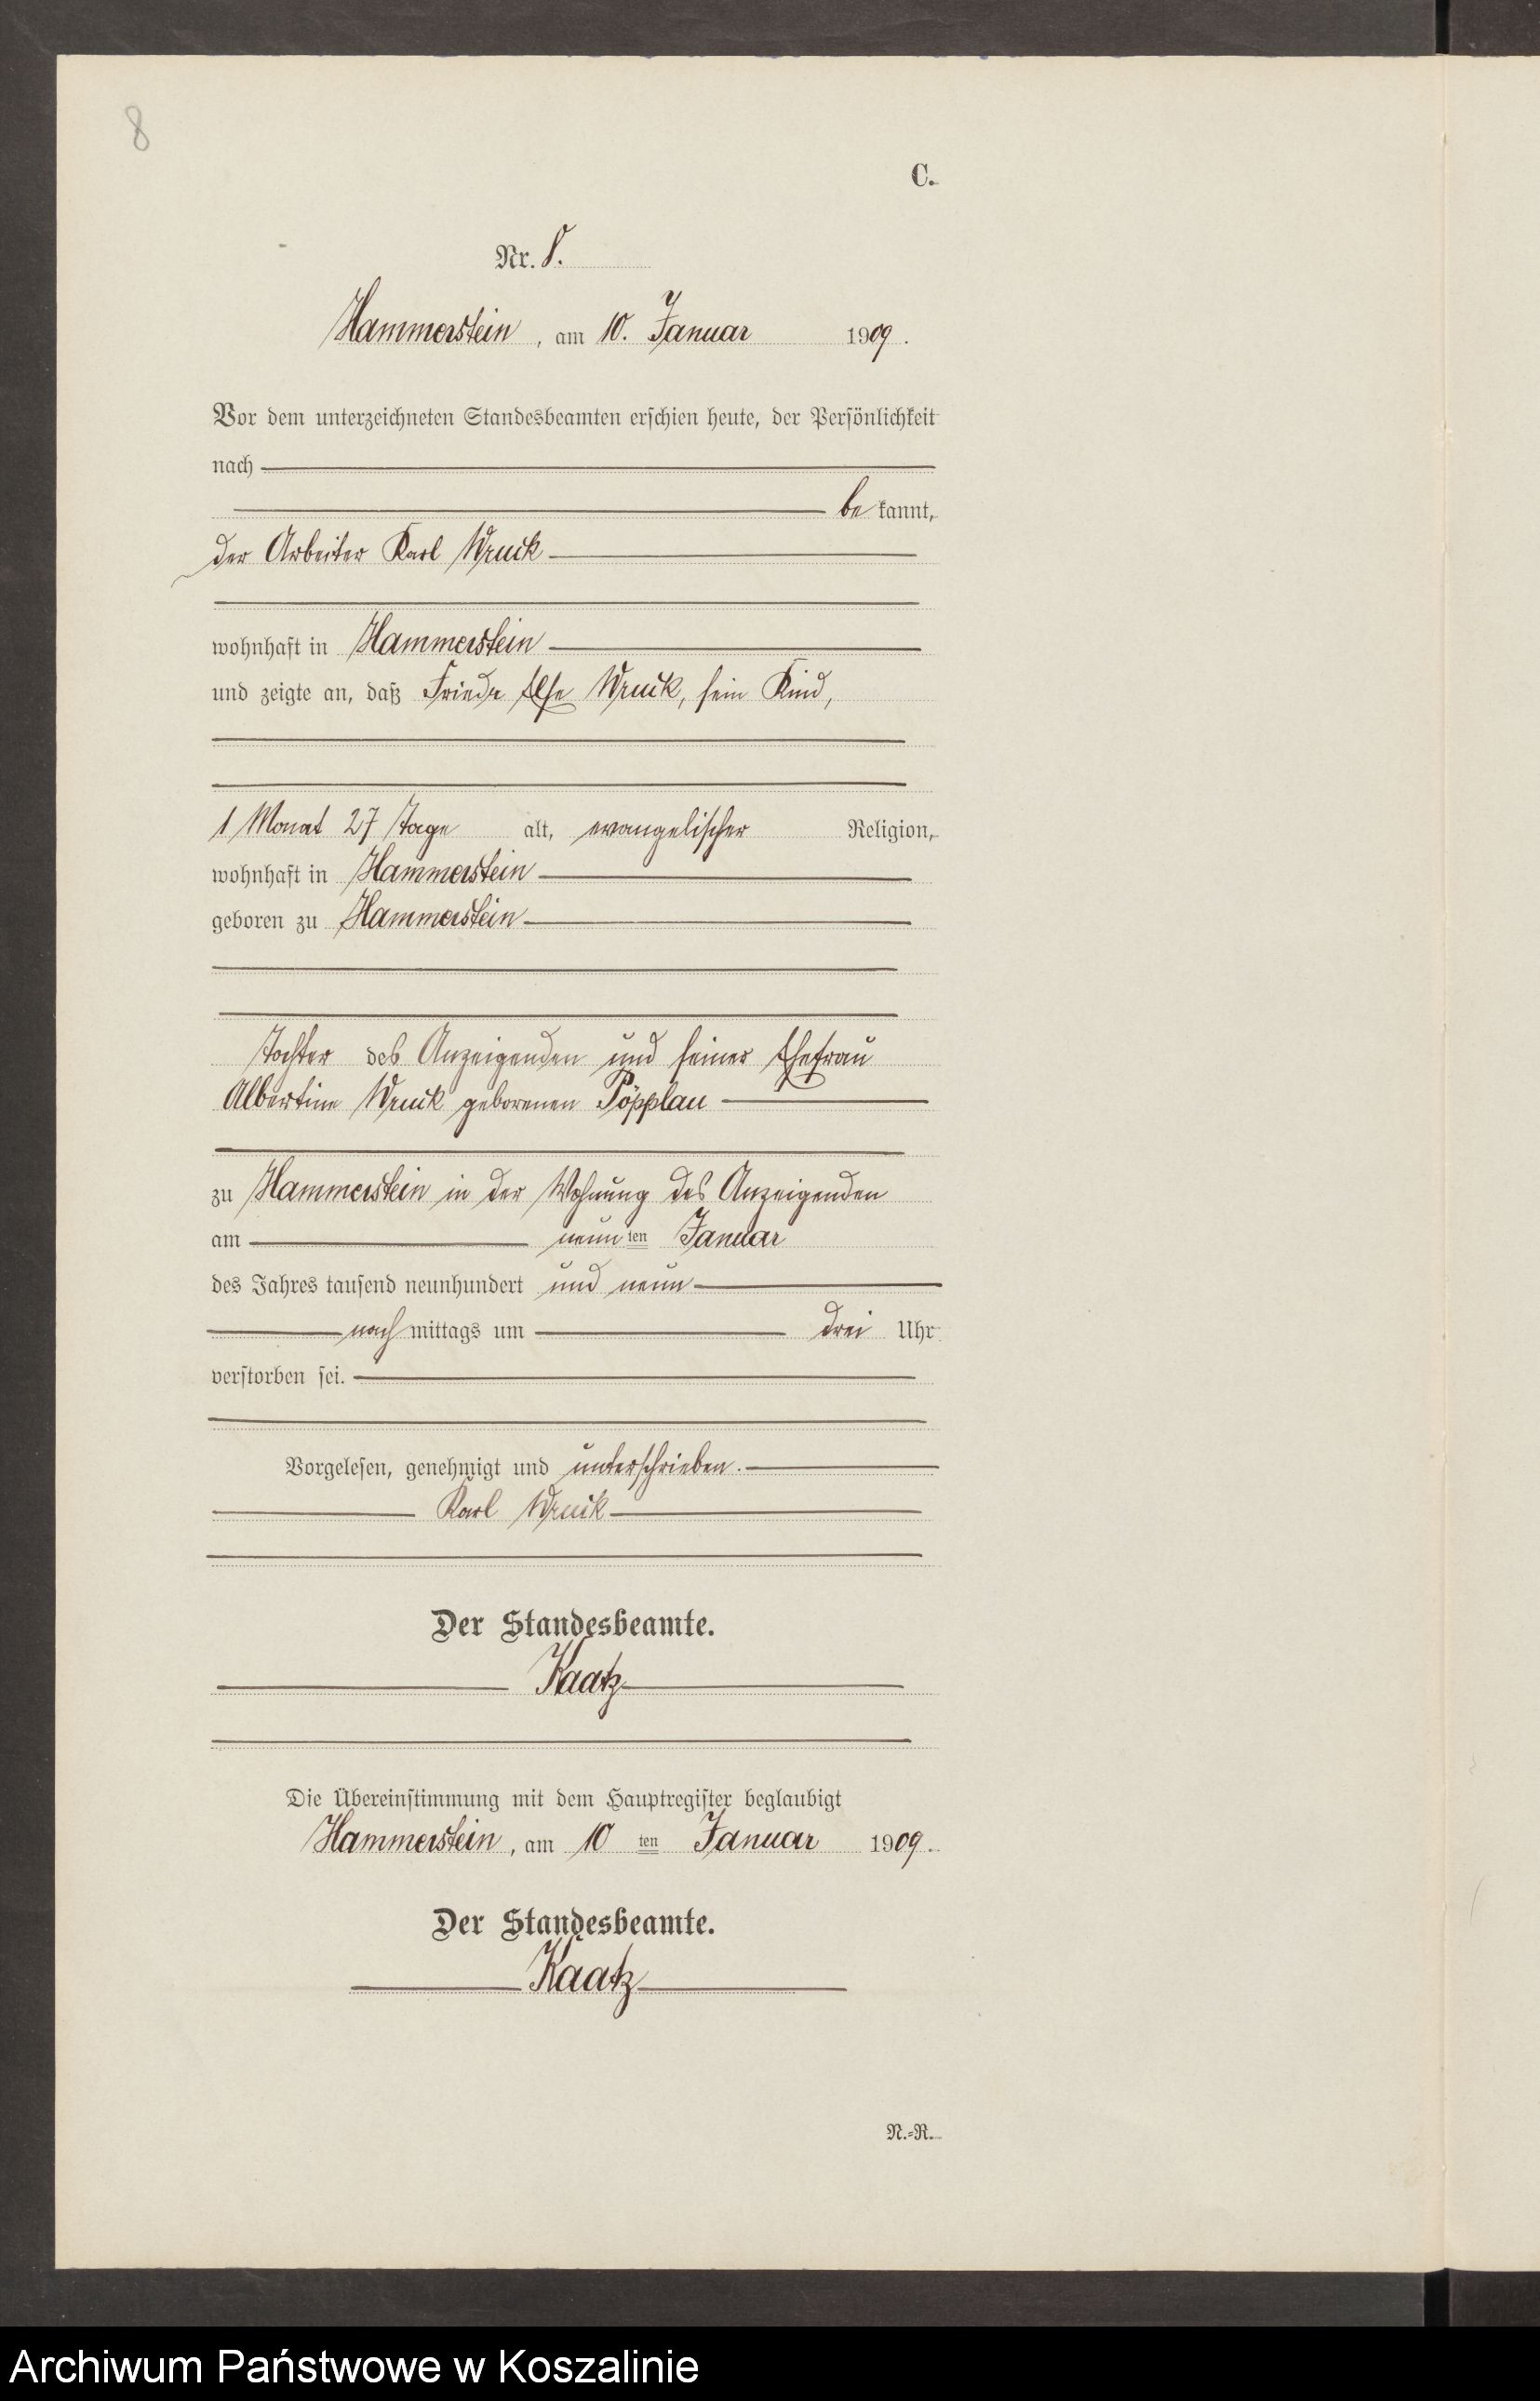 8
C.
Nr. 8.
Hammerstein, am 10. Januar 1909.
Vor dem unterzeichneten Standesbeamten erschien heute, der Persönlichkeit
nach
bekannt,
der Arbeiter Karl Wruck
wohnhaft in Hammerstein
und zeigte an, daß Frieda Else Wruck, sein Kind,
1 Monat 27 Tage alt, evangelischer Religion,
wohnhaft in Hammerstein
geboren zu Hammerstein
Tochter des Anzeigenden und seiner Ehefrau
Albertine Wruck geborenen Pöpplau
zu Hammerstein in der Wohnung des Anzeigenden
am neunten Januar
des Jahres tausend neunhundert und neun
nachmittags um drei Uhr
verstorben sei.
Vorgelesen, genehmigt und unterschrieben.
Karl Wruck
Der Standesbeamte.
Kaatz
Die Übereinstimmung mit dem Hauptregister beglaubigt
Hammerstein, am 10ten Januar 1909.
Der Standesbeamte.
Kaatz
N.=R.
Archiwum Państwowe w Koszalinie